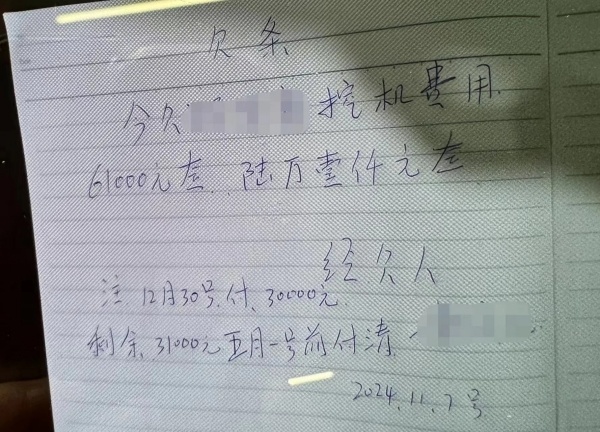 欠条
今欠 挖机费用
61000元壹. 陆万壹仟元壹
经欠人
注. 12月30号.付. 30000元.
剩余. 31000元五月一号前付清
2024.11.7号